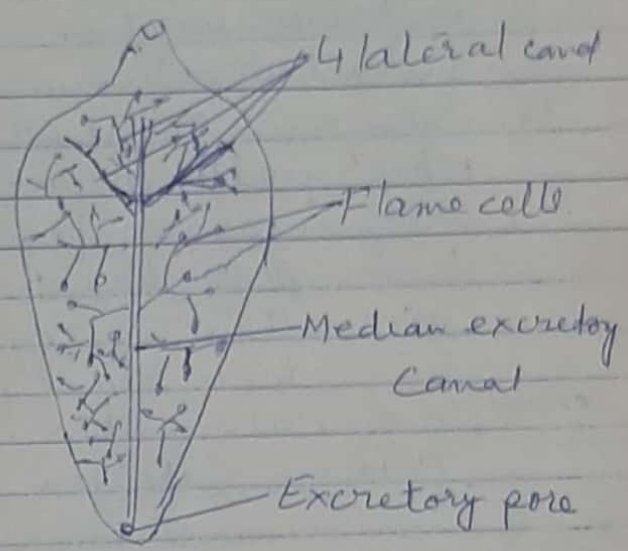 4 lateral canal
Flame cells
Median excretory
Canal
Excretory pore